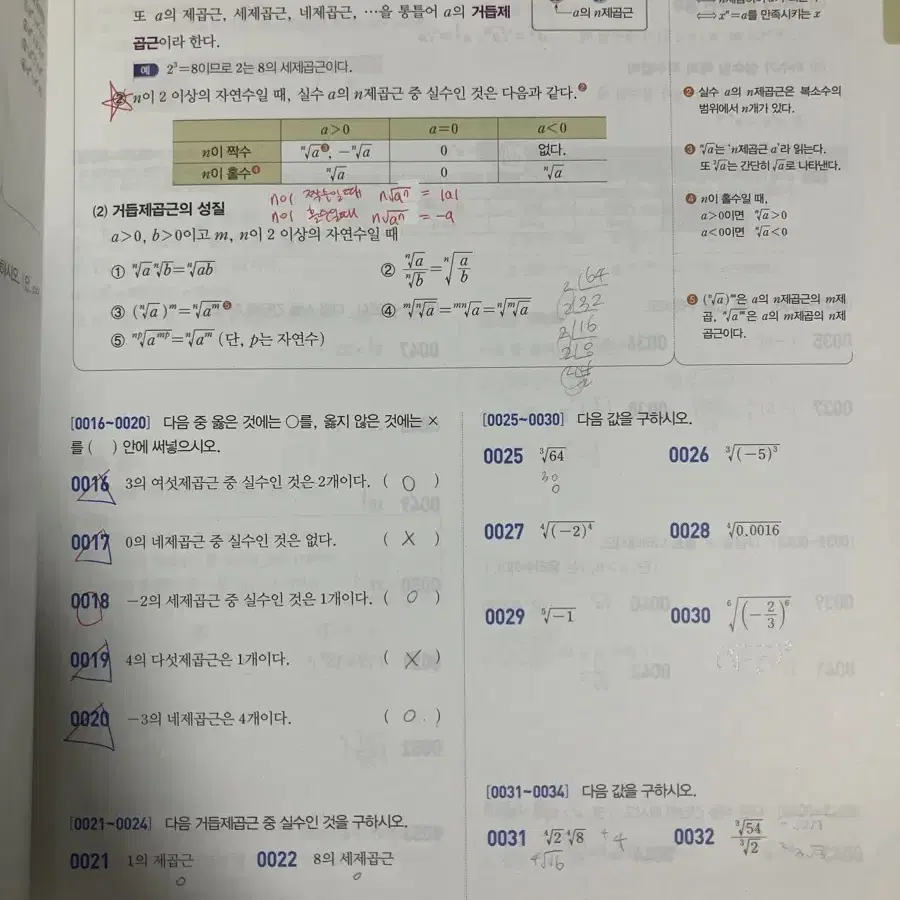 또 a의 제곱근, 세제곱근, 네제곱근, …을 통틀어 a의 거듭제
곱근이라 한다.
예 2³=8이므로 2는 8의 세제곱근이다.
a의 n제곱근
⇔ xⁿ=a를 만족시키는 x
② n이 2 이상의 자연수일 때, 실수 a의 n제곱근 중 실수인 것은 다음과 같다.❷
a>0 a=0 a<0
n이 짝수 ⁿ√a❸, -ⁿ√a 0 없다.
n이 홀수❹ ⁿ√a 0 ⁿ√a
n이 짝수일때 ⁿ√aⁿ = |a|
n이 홀수일때 ⁿ√aⁿ = -a
(2) 거듭제곱근의 성질
a>0, b>0이고 m, n이 2 이상의 자연수일 때
① ⁿ√a ⁿ√b=ⁿ√ab
② ⁿ√a/ⁿ√b=ⁿ√(a/b)
③ (ⁿ√a)ᵐ=ⁿ√aᵐ❺
④ ᵐ√ⁿ√a=ᵐⁿ√a=ⁿ√ᵐ√a
⑤ ⁿᵖ√aᵐᵖ=ⁿ√aᵐ (단, p는 자연수)
2 64
2 32
2 16
2 8
❷ 실수 a의 n제곱근은 복소수의
범위에서 n개가 있다.
❸ ⁿ√a는 'n제곱근 a'라 읽는다.
또 ²√a는 간단히 √a로 나타낸다.
❹ n이 홀수일 때,
a>0이면 ⁿ√a>0
a<0이면 ⁿ√a<0
❺ (ⁿ√a)ᵐ은 a의 n제곱근의 m제
곱, ⁿ√aᵐ은 a의 m제곱의 n제
곱근이다.
[0016~0020] 다음 중 옳은 것에는 ○를, 옳지 않은 것에는 ×
를 ( ) 안에 써넣으시오.
0016 3의 여섯제곱근 중 실수인 것은 2개이다. ( O )
0017 0의 네제곱근 중 실수인 것은 없다. ( X )
0018 -2의 세제곱근 중 실수인 것은 1개이다. ( O )
0019 4의 다섯제곱근은 1개이다. ( X )
0020 -3의 네제곱근은 4개이다. ( O )
[0021~0024] 다음 거듭제곱근 중 실수인 것을 구하시오.
0021 1의 제곱근 0022 8의 세제곱근
[0025~0030] 다음 값을 구하시오.
0025 ³√64 0026 ³√(-5)³
0027 ⁴√(-2)⁴ 0028 ⁴√0.0016
0029 ⁵√-1 0030 ⁶√(-2/3)⁶
[0031~0034] 다음 값을 구하시오.
0031 ⁴√2 ⁴√8 0032 ³√54/³√2
⁴√16